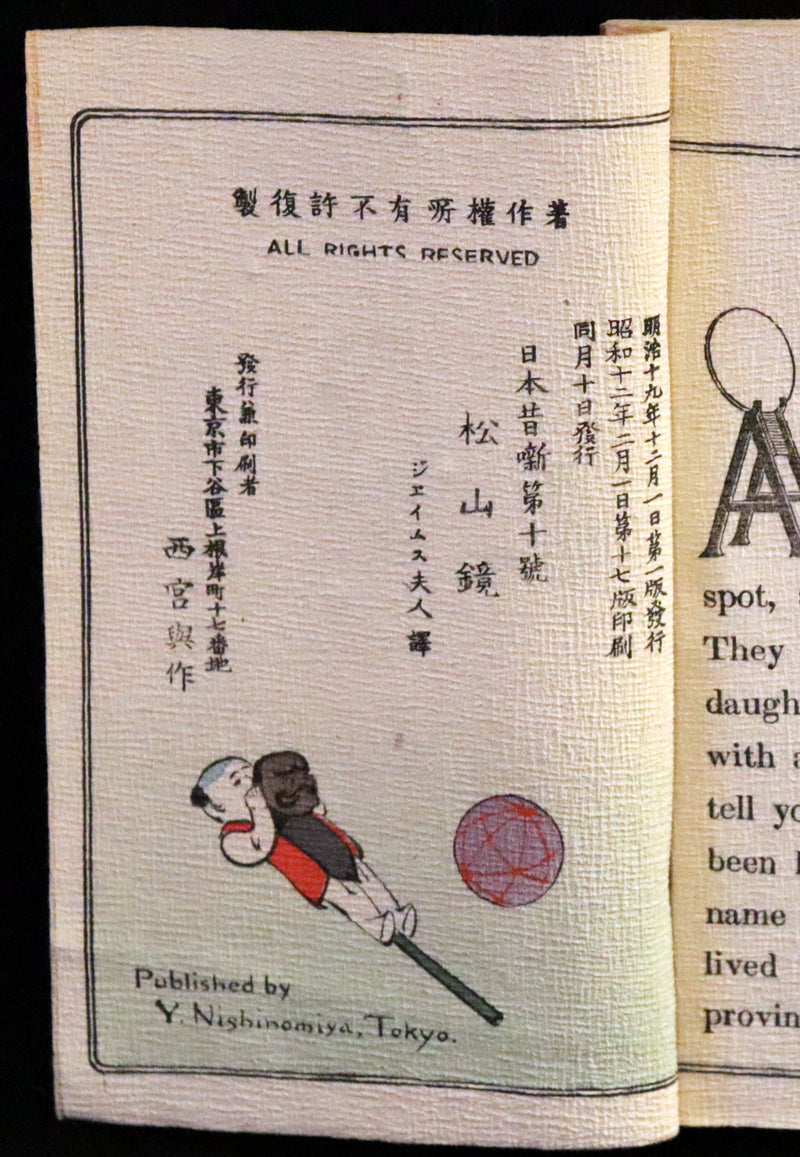 製復許不有所權作著
ALL RIGHTS RESERVED
明治十九年十二月一日第一版發行
昭和十二年二月一日第十七版印刷
同月十日發行
日本昔噺第十號
松山鏡
ジェイムス夫人 譯
發行兼印刷者
東京市下谷區上根岸町十七番地
西宮與作
Published by
Y. Nishinomiya, Tokyo.
A
spot,
They
daugh
with a
tell yo
been
name
lived
provin